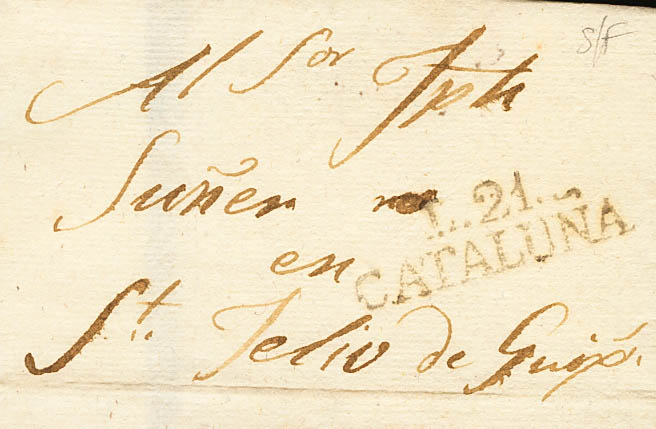 S/F
Al Sor Jph
Suñer
L..21..
CATALUÑA
en
St. Feliu de Guix.